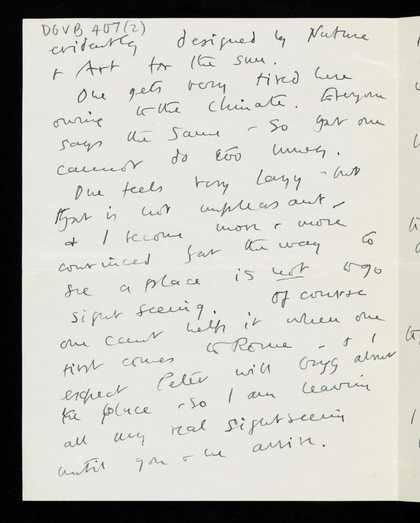 DGVB 407(2)
evidently designed by Nature
+ Art for the sun.
One gets very tired here
owing to the climate. Everyone
says the same - so that one
cannot do too much.
One feels very lazy - but
that is not unpleasant -
+ I become more + more
convinced that the way to
see a place is not to go
sight seeing. Of course
one can't help it when one
first comes to Rome - + I
expect Peter will drag about
the place - so I am leaving
all my real sightseeing
until you + he arrive.